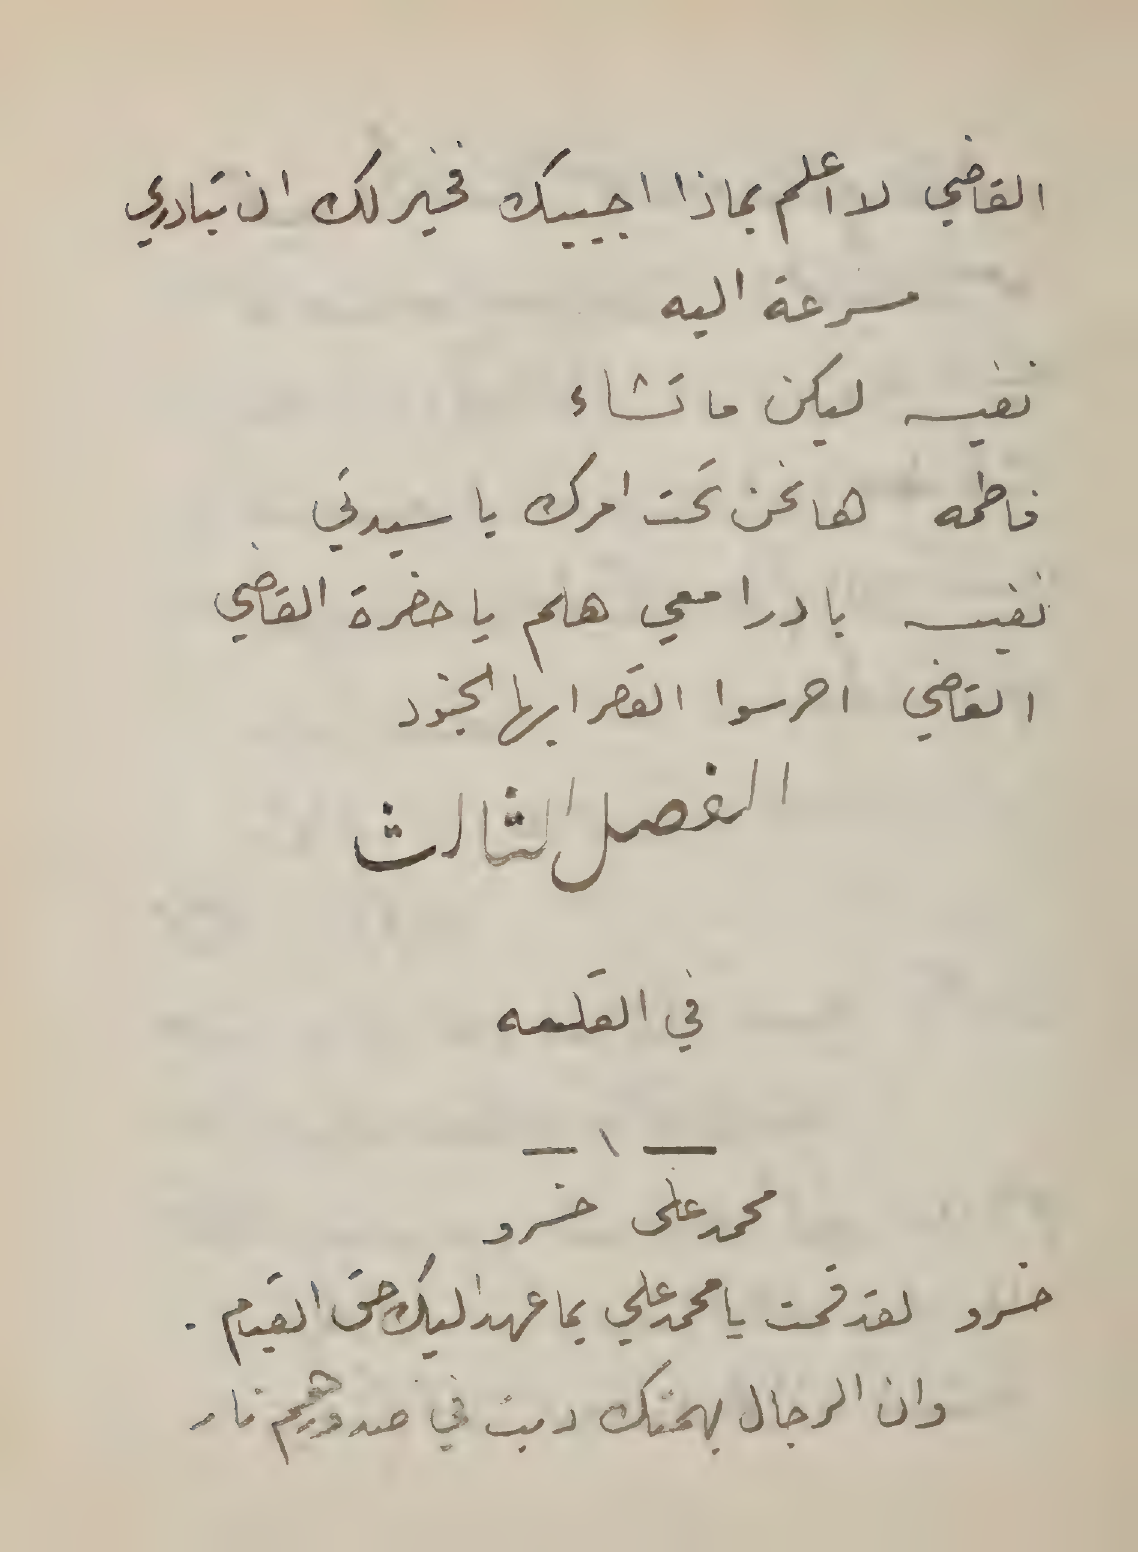 القاضي لا اعلم بماذا اجيبك فخير لك ان تبادري
مسرعة اليه
نفيسه ليكن ما تشاء
فاطمه ها نحن تحت امرك يا سيدتي
نفيسه بادرا معي هلم يا حضرة القاضي
القاضي احرسوا القصر ايها الجنود
الفصل الثالث
في القلعه
— ١ —
محمد على خسرو
خسرو لقد قمت يا محمد علي بما عهد اليك حق القيام .
وان الرجال بهمتك دبت في صدورهم نار